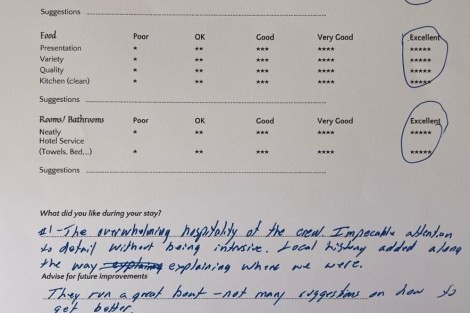 Suggestions
Food Poor OK Good Very Good Excellent
Presentation * ** *** **** *****
Variety * ** *** **** *****
Quality * ** *** **** *****
Kitchen (clean) * ** *** **** *****
Suggestions
Rooms/ Bathrooms Poor OK Good Very Good Excellent
Neatly * ** *** **** *****
Hotel Service
(Towels, Bed,..) * ** *** **** *****
Suggestions
What did you like during your stay?
#1 - The overwhelming hospitality of the crew. Impecable attention
to detail without being intrusive. Local history added along
the way explaining explaining where we were.
Advise for future improvements
They run a great boat - not many suggestions on how to
get better.